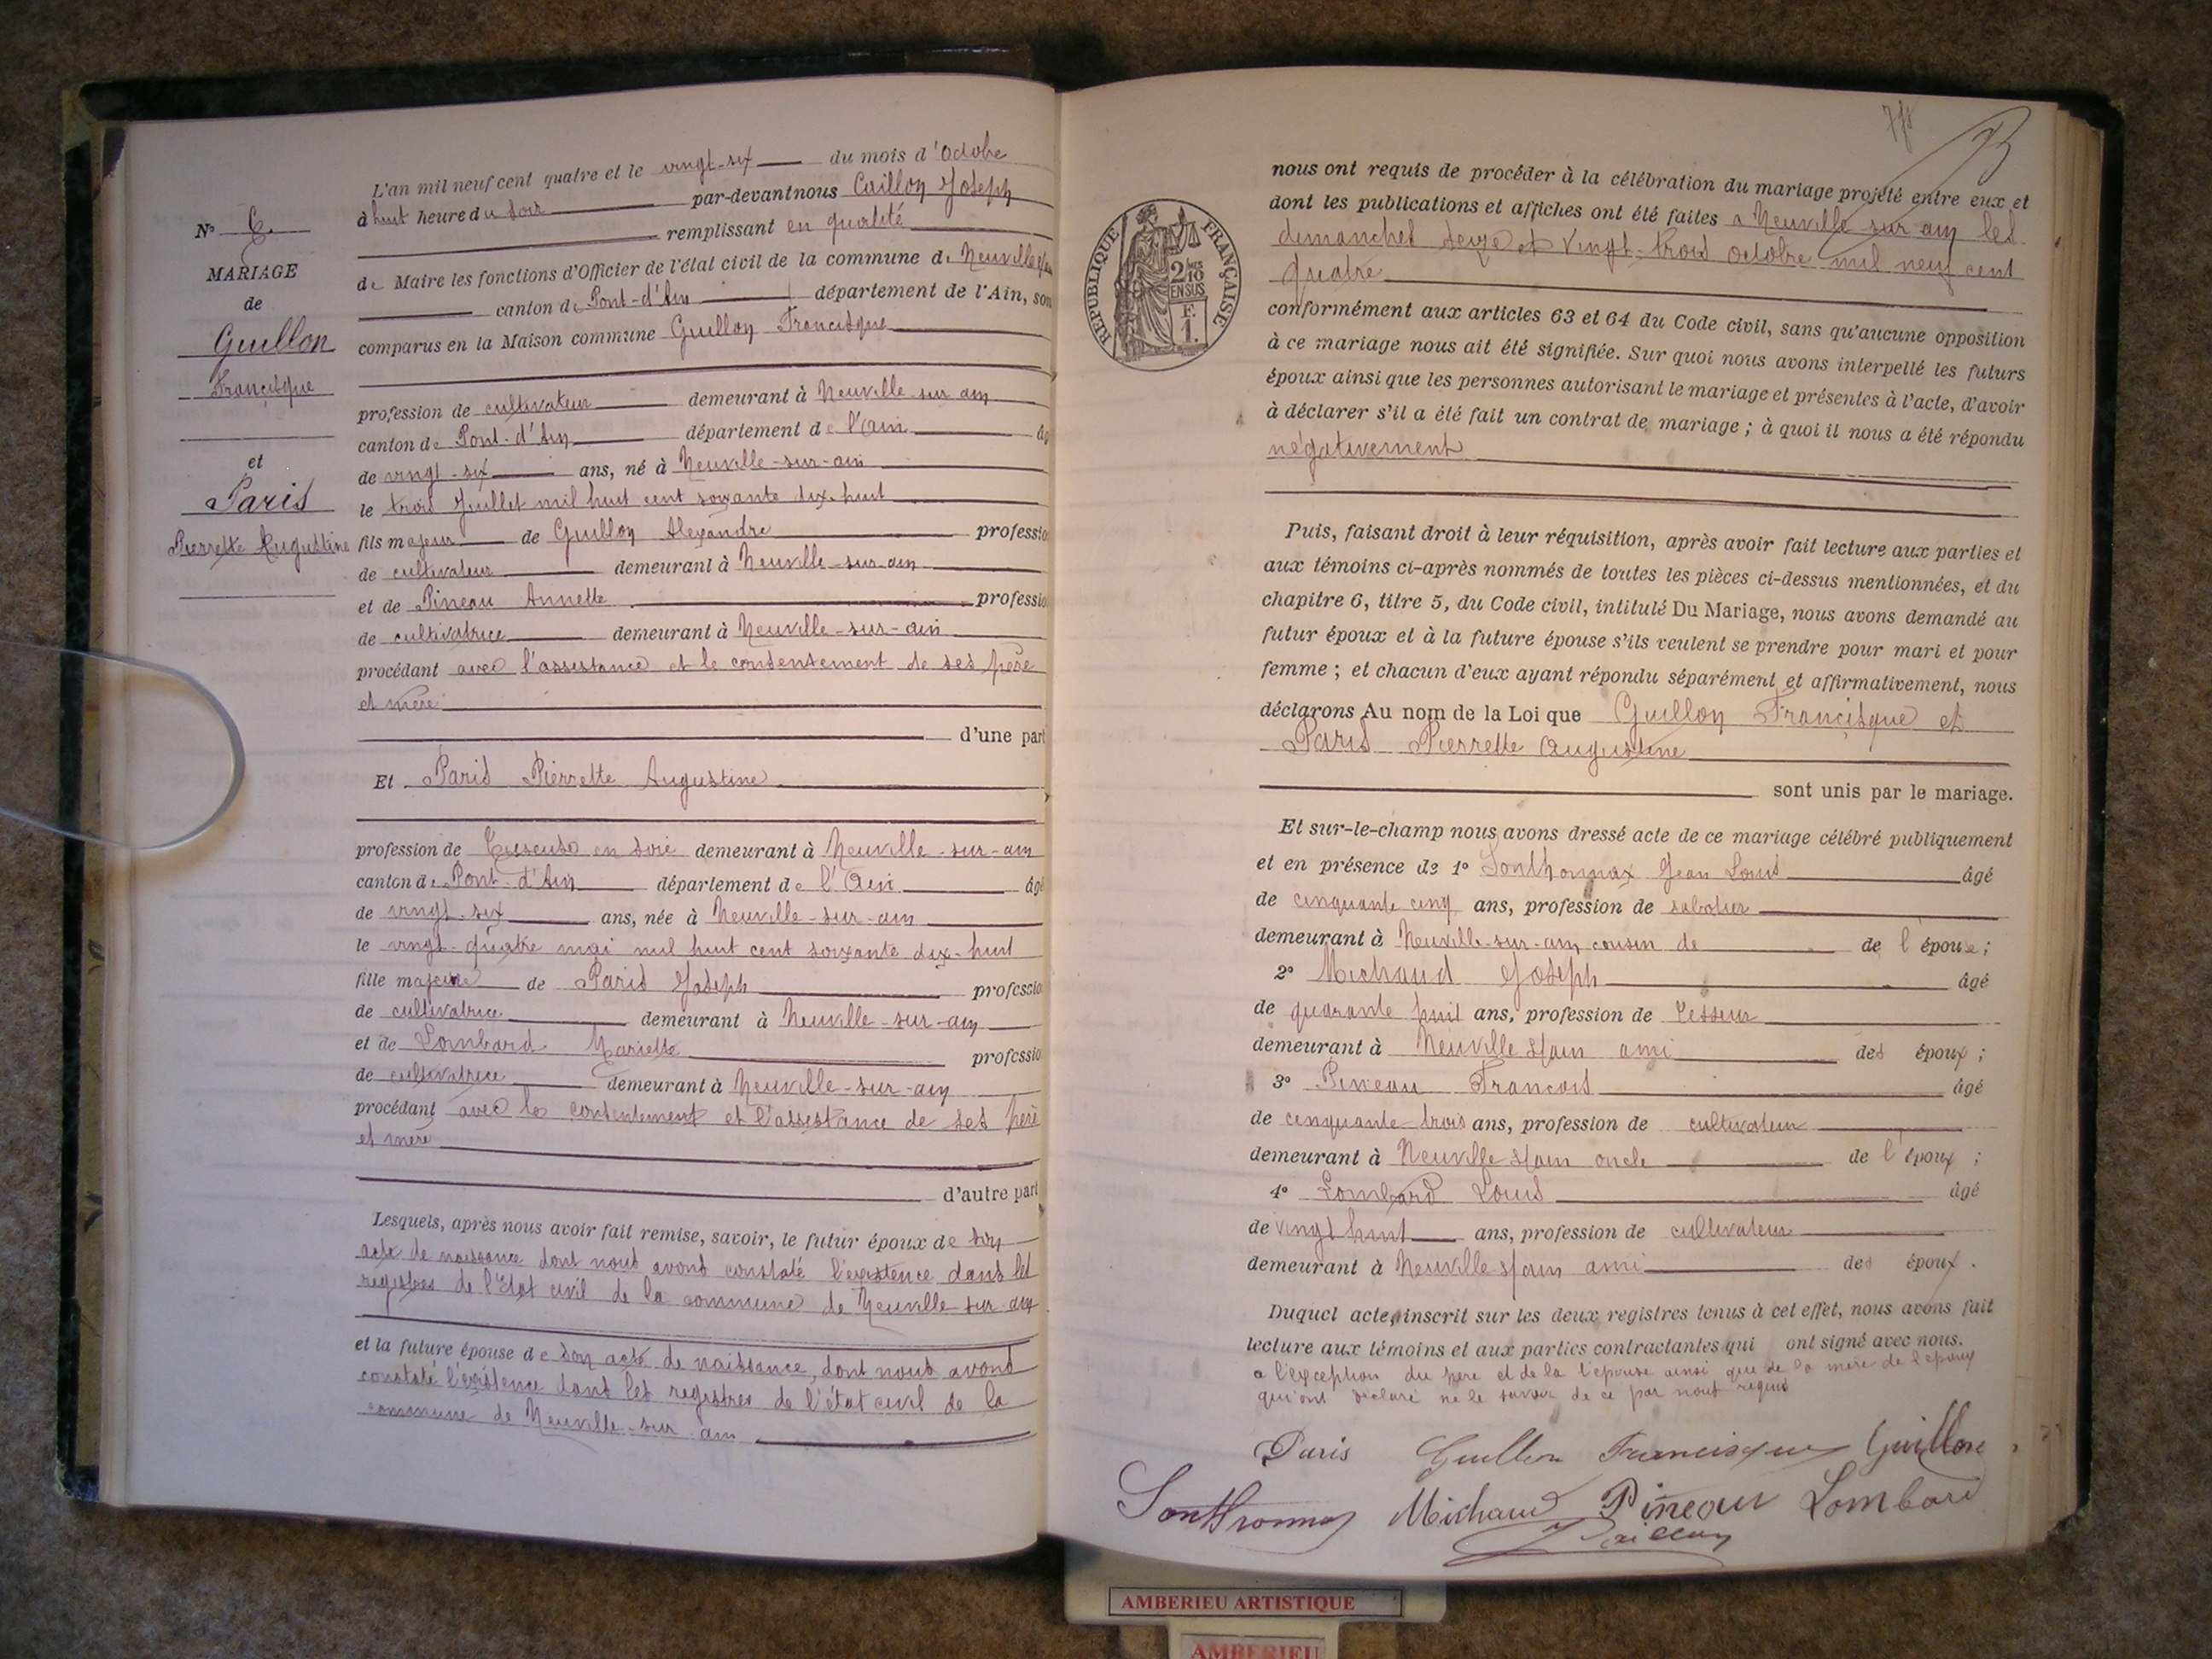 N° 6.
MARIAGE
de
Guillon
Francisque
et
Paris
Pierrette Augustine
L'an mil neuf cent quatre et le vingt-six du mois d'Octobre
à huit heure du soir par-devant nous Caillon Joseph
remplissant en qualité
de Maire les fonctions d'Officier de l'état civil de la commune de Neuville s/ain
canton de Pont-d'Ain département de l'Ain, son
comparus en la Maison commune Guillon Francisque
profession de cultivateur demeurant à Neuville sur ain
canton de Pont-d'Ain département de l'ain âg
de vingt-six ans, né à Neuville-sur-ain
le trois Juillet mil huit cent soixante dix-huit
fils majeur de Guillon Alexandre professio
de cultivateur demeurant à Neuville-sur-ain
et de Pineau Annette professio
de cultivatrice demeurant à Neuville-sur-ain
procédant avec l'assistance et le consentement de ses père
et mère
d'une part
Et Paris Pierrette Augustine
profession de en soie demeurant à Neuville-sur-ain
canton de Pont-d'Ain département de l'Ain âgé
de vingt-six ans, née à Neuville-sur-ain
le vingt-quatre mai mil huit cent soixante dix-huit
fille majeure de Paris Joseph professio
de cultivatrice demeurant à Neuville-sur-ain
et de Lombard Mariette professio
de cultivatrice demeurant à Neuville-sur-ain
procédant avec le consentement et l'assistance de ses père
et mère
d'autre part
Lesquels, après nous avoir fait remise, savoir, le futur époux de son
acte de naissance dont nous avons constaté l'existence dans les
registres de l'Etat civil de la commune de Neuville sur ain
et la future épouse de son acte de naissance, dont nous avons
constaté l'existence dans les registres de l'état civil de la
commune de Neuville-sur ain
nous ont requis de procéder à la célébration du mariage projeté entre eux et
dont les publications et affiches ont été faites a Neuville sur ain les
dimanches seize et vingt-trois octobre mil neuf cent
quatre
RÉPUBLIQUE FRANÇAISE
2/10es
EN SUS
F.
1.
conformément aux articles 63 et 64 du Code civil, sans qu'aucune opposition
à ce mariage nous ait été signifiée. Sur quoi nous avons interpellé les futurs
époux ainsi que les personnes autorisant le mariage et présentes à l'acte, d'avoir
à déclarer s'il a été fait un contrat de mariage ; à quoi il nous a été répondu
négativement
Puis, faisant droit à leur réquisition, après avoir fait lecture aux parties et
aux témoins ci-après nommés de toutes les pièces ci-dessus mentionnées, et du
chapitre 6, titre 5, du Code civil, intitulé Du Mariage, nous avons demandé au
futur époux et à la future épouse s'ils veulent se prendre pour mari et pour
femme ; et chacun d'eux ayant répondu séparément et affirmativement, nous
déclarons Au nom de la Loi que Guillon Francisque et
Paris Pierrette Augustine
sont unis par le mariage.
Et sur-le-champ nous avons dressé acte de ce mariage célébré publiquement
et en présence de 1° Sonthonnax Jean Louis âgé
de cinquante cinq ans, profession de sabotier
demeurant à Neuville-sur-ain cousin de de l'épouse ;
2° Michaud Joseph âgé
de quarante huit ans, profession de
demeurant à Neuville s/ain ami des époux ;
3° Pineau Francois âgé
de cinquante-trois ans, profession de cultivateur
demeurant à Neuville s/ain oncle de l'époux ;
4° Lombard Louis âgé
de vingt huit ans, profession de cultivateur
demeurant à Neuville s/ain ami des époux.
Duquel acte, inscrit sur les deux registres tenus à cet effet, nous avons fait
lecture aux témoins et aux parties contractantes qui ont signé avec nous.
a l'exception du père et de la l'epouse ainsi que de la mère de l'epoux
qui ont déclaré ne le savoir de ce par nous requis
Paris Guillon Francisque Guillon
Sonthonnax Michaud Pineau Lombard
Caillon
AMBERIEU ARTISTIQUE
AMBERIEU